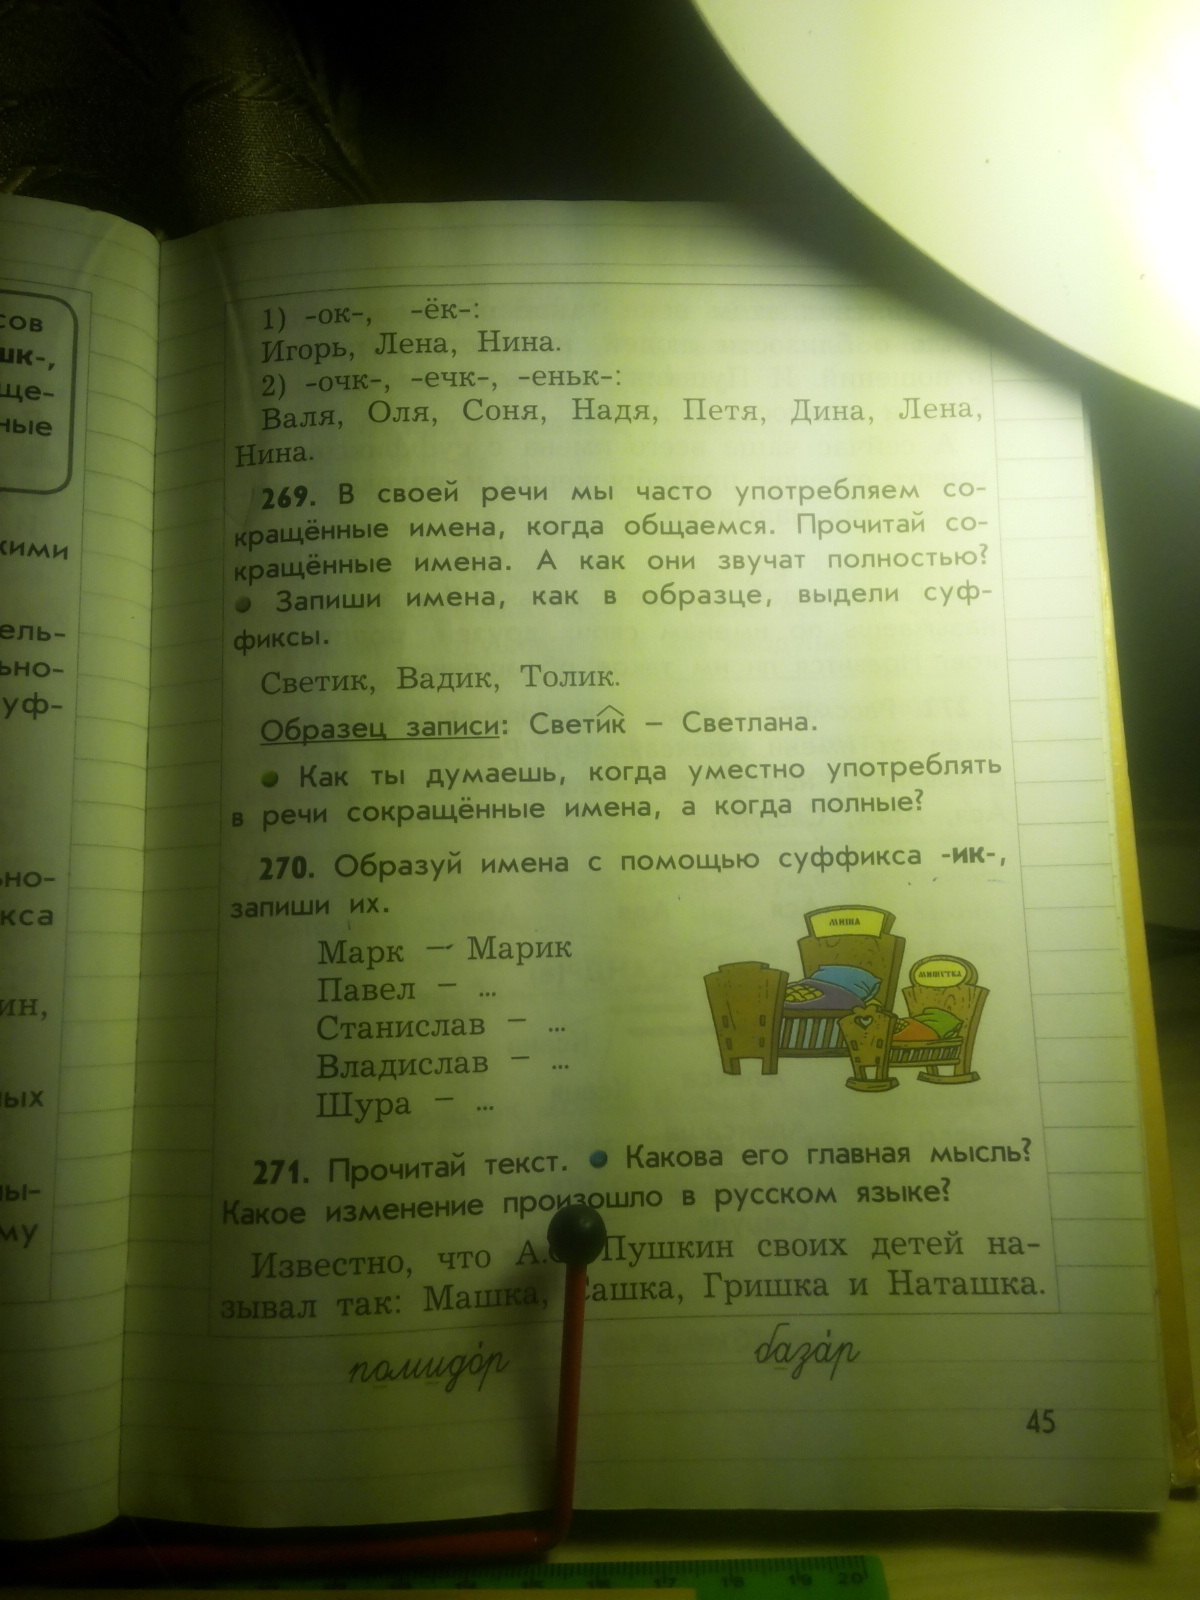 сов
шк-,
ще-
ные
кими
ель-
ьно-
уф-
ьно-
кса
ин,
ых
ы-
му
1) -ок-, -ёк-:
Игорь, Лена, Нина.
2) -очк-, -ечк-, -еньк-:
Валя, Оля, Соня, Надя, Петя, Дина, Лена,
Нина.
269. В своей речи мы часто употребляем со-
кращённые имена, когда общаемся. Прочитай со-
кращённые имена. А как они звучат полностью?
● Запиши имена, как в образце, выдели суф-
фиксы.
Светик, Вадик, Толик.
Образец записи: Светик – Светлана.
● Как ты думаешь, когда уместно употреблять
в речи сокращённые имена, а когда полные?
270. Образуй имена с помощью суффикса -ик-,
запиши их.
Марк – Марик
Павел – ...
Станислав – ...
Владислав – ...
Шура – ...
МИША
МИШУТКА
271. Прочитай текст. ● Какова его главная мысль?
Какое изменение произошло в русском языке?
Известно, что А. Пушкин своих детей на-
зывал так: Машка, Сашка, Гришка и Наташка.
помидо́р база́р
45
14 15 16 17 18 19 20